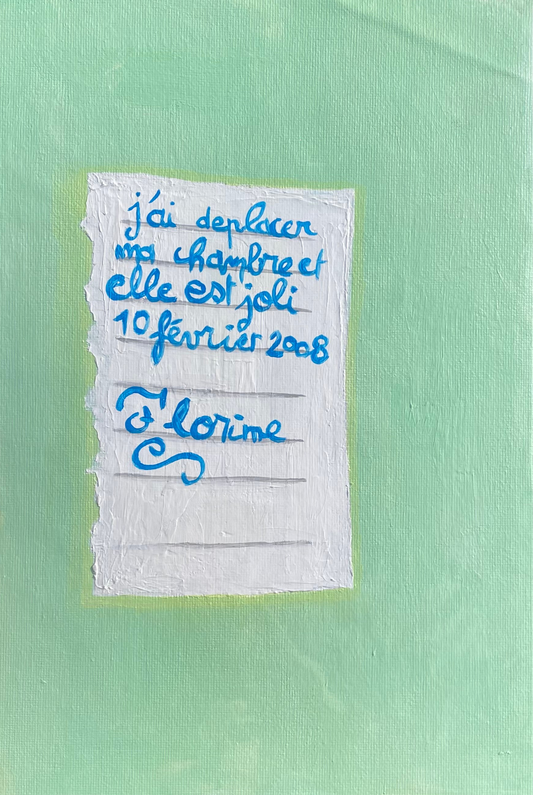 j'ai deplacer
ma chambre et
elle est joli
10 février 2008
Florime